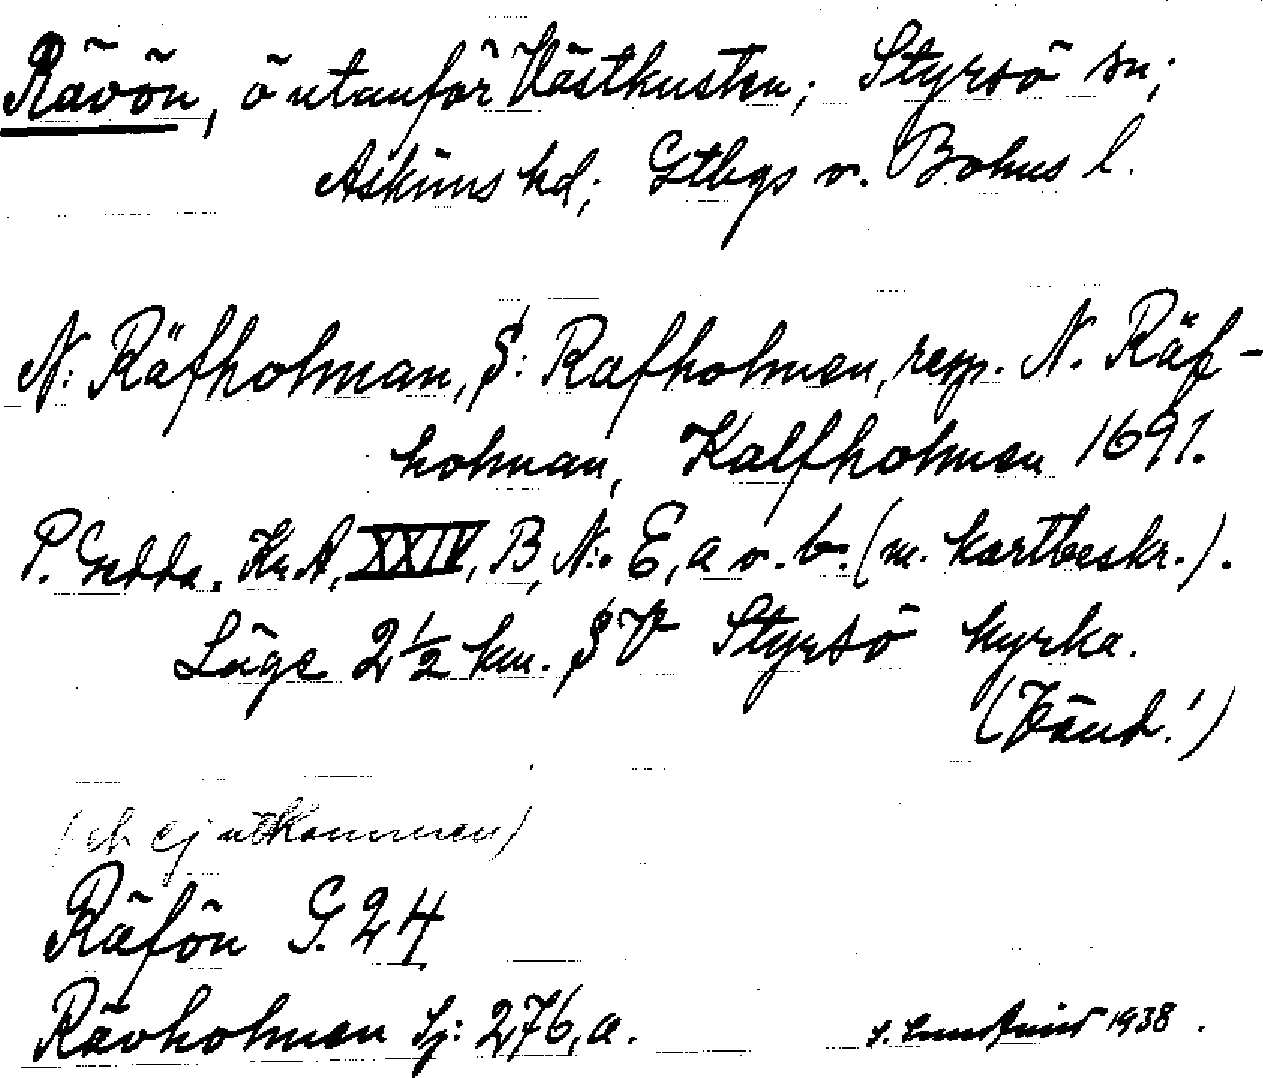 Rävön, ö utanför Västkusten; Styrsö sn;
Askims hd; Gtbgs o. Bohus l.
N: Räfholman, S: Rafholmen, resp. N. Räf-
holman, Kalfholmen 1691.
P. Gedda. Kr. A. XXIV, B, N:o E, a o. b. (m. kartbeskr.).
Läge 2 1/2 km. SV Styrsö kyrka.
(Känd!)
(ek ej utkommen)
Räfön G. 24
Rävholmen Sj: 276, a.
1938.